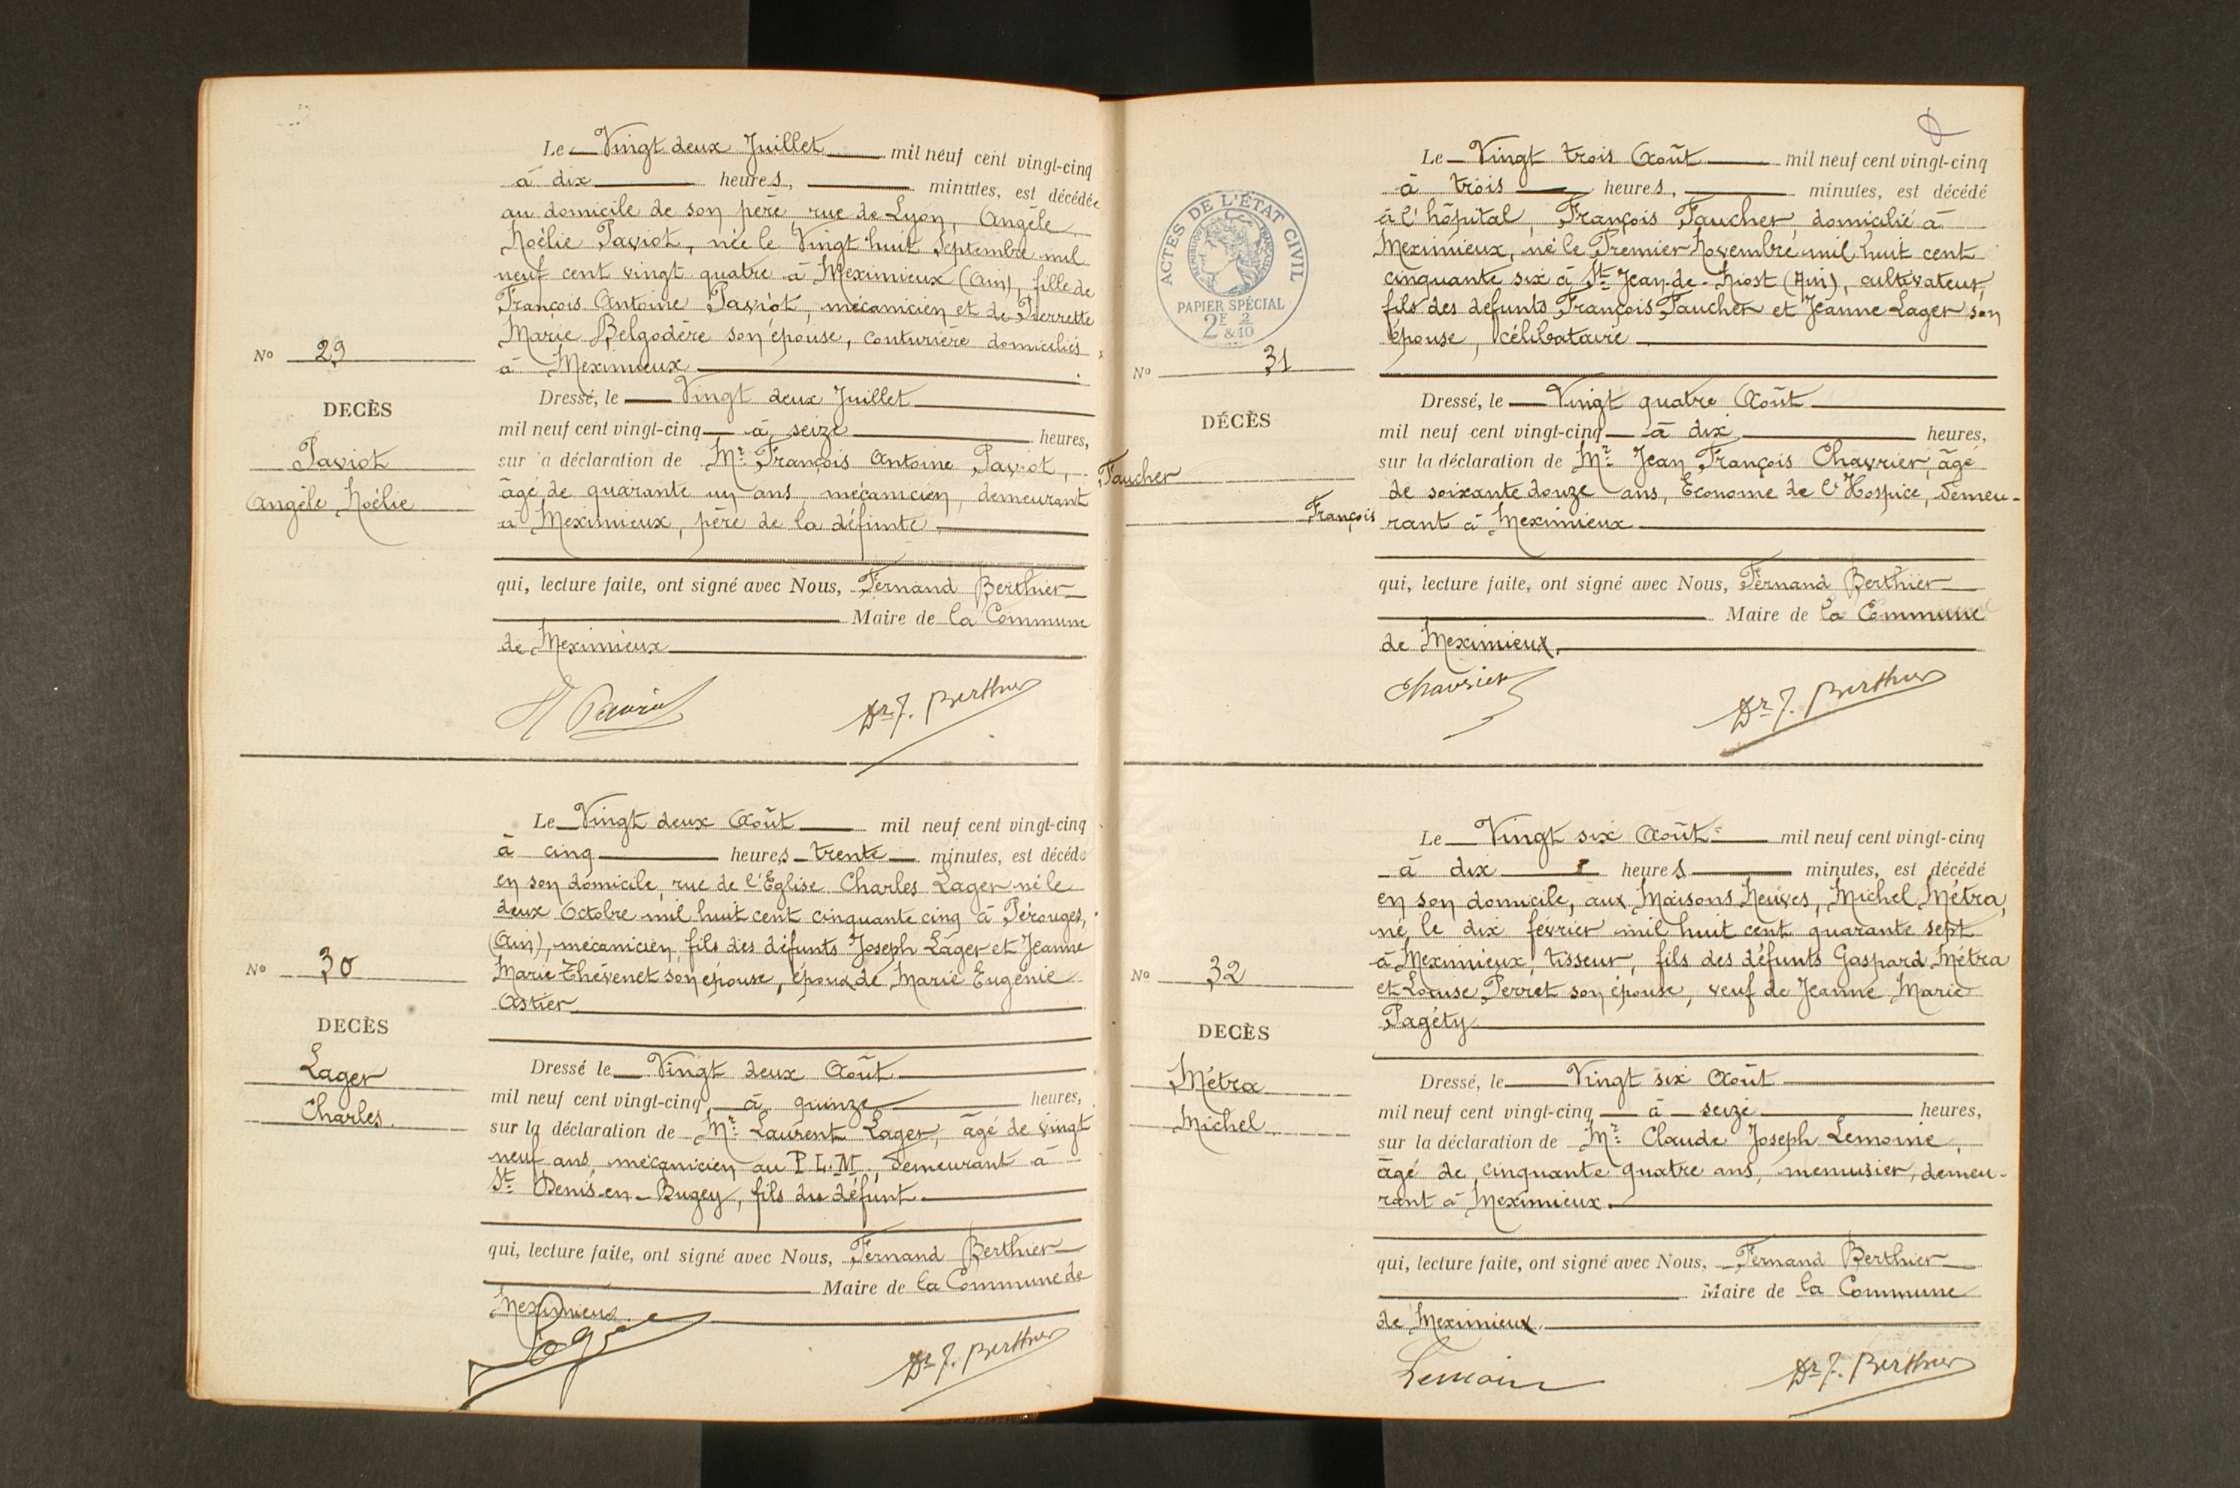 Le Vingt deux Juillet mil neuf cent vingt-cinq
à dix heures, minutes, est décédée
au domicile de son père rue de Lyon, Angèle
Noélie Paviot, née le Vingt huit Septembre mil
neuf cent vingt quatre à Meximieux (Ain), fille de
François Antoine Paviot, mécanicien et de Pierrette
Marie Belgodère son épouse, couturière domiciliés
à Meximieux
No 29
DECÈS
Paviot
Angèle Noélie
Dressé, le Vingt deux Juillet
mil neuf cent vingt-cinq à seize heures,
sur a déclaration de Mr François Antoine Paviot,
âgé de quarante un ans mécanicien, demeurant
à Meximieux, père de la défunte
qui, lecture faite, ont signé avec Nous, Fernand Berthier
Maire de la Commune
de Meximieux
Dr F. Berthier
Le Vingt deux Août mil neuf cent vingt-cinq
à cinq heures trente minutes, est décédé
en son domicile, rue de l'Eglise Charles Lager né le
deux Octobre mil huit cent cinquante cinq à Pérouges,
(Ain), mécanicien, fils des défunts Joseph Lager et Jeanne
Marie Thévenet son épouse, époux de Marie Eugénie
Astier
No 30
DECÈS
Lager
Charles.
Dressé le Vingt deux Août
mil neuf cent vingt-cinq, à quinze heures,
sur la déclaration de Mr Laurent Lager, âgé de vingt
neuf ans, mécanicien au P.L.M., demeurant à
St Denis-en-Bugey, fils du défunt
qui, lecture faite, ont signé avec Nous, Fernand Berthier
Maire de la Commune de
Meximieux.
Lager
Dr F. Berthier
ACTES DE L'ÉTAT CIVIL
PAPIER SPÉCIAL
2E & 2/10
Le Vingt trois Août mil neuf cent vingt-cinq
à trois heures, minutes, est décédé
à l'hôpital, François Faucher, domicilié à
Meximieux, né le Premier Novembre mil huit cent
cinquante six à St Jean-de-Niost (Ain), cultivateur,
fils des défunts François Faucher et Jeanne Lager son
épouse, célibataire
No 31
DÉCÈS
Faucher
François
Dressé, le Vingt quatre Août
mil neuf cent vingt-cinq à dix heures,
sur la déclaration de Mr Jean François Chavrier, âgé
de soixante douze ans, Econome de l'Hospice, demeu-
rant à Meximieux
qui, lecture faite, ont signé avec Nous, Fernand Berthier
Maire de la Commune
de Meximieux.
Chavrier
Dr F. Berthier
Le Vingt six Août mil neuf cent vingt-cinq
à dix heures minutes, est décédé
en son domicile, aux Maisons Neuves, Michel Métra,
né le dix février mil huit cent quarante sept
à Meximieux, tisseur, fils des défunts Gaspard Métra
et Louise Perret son épouse, veuf de Jeanne Marie
Pagéty
No 32
DECÈS
Métra
Michel
Dressé, le Vingt six Août
mil neuf cent vingt-cinq à seize heures,
sur la déclaration de Mr Claude Joseph Lemoine,
âgé de cinquante quatre ans, menuisier, demeu-
rant à Meximieux.
qui, lecture faite, ont signé avec Nous, Fernand Berthier
Maire de la Commune
de Meximieux.
Lemoine
Dr F. Berthier